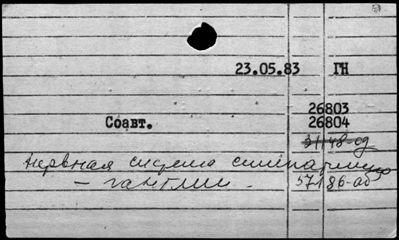 23.05.83 ГН
26803
Соавт. 26804
31148-од
нервная система симпатич.
— ганглии. 57186-аб